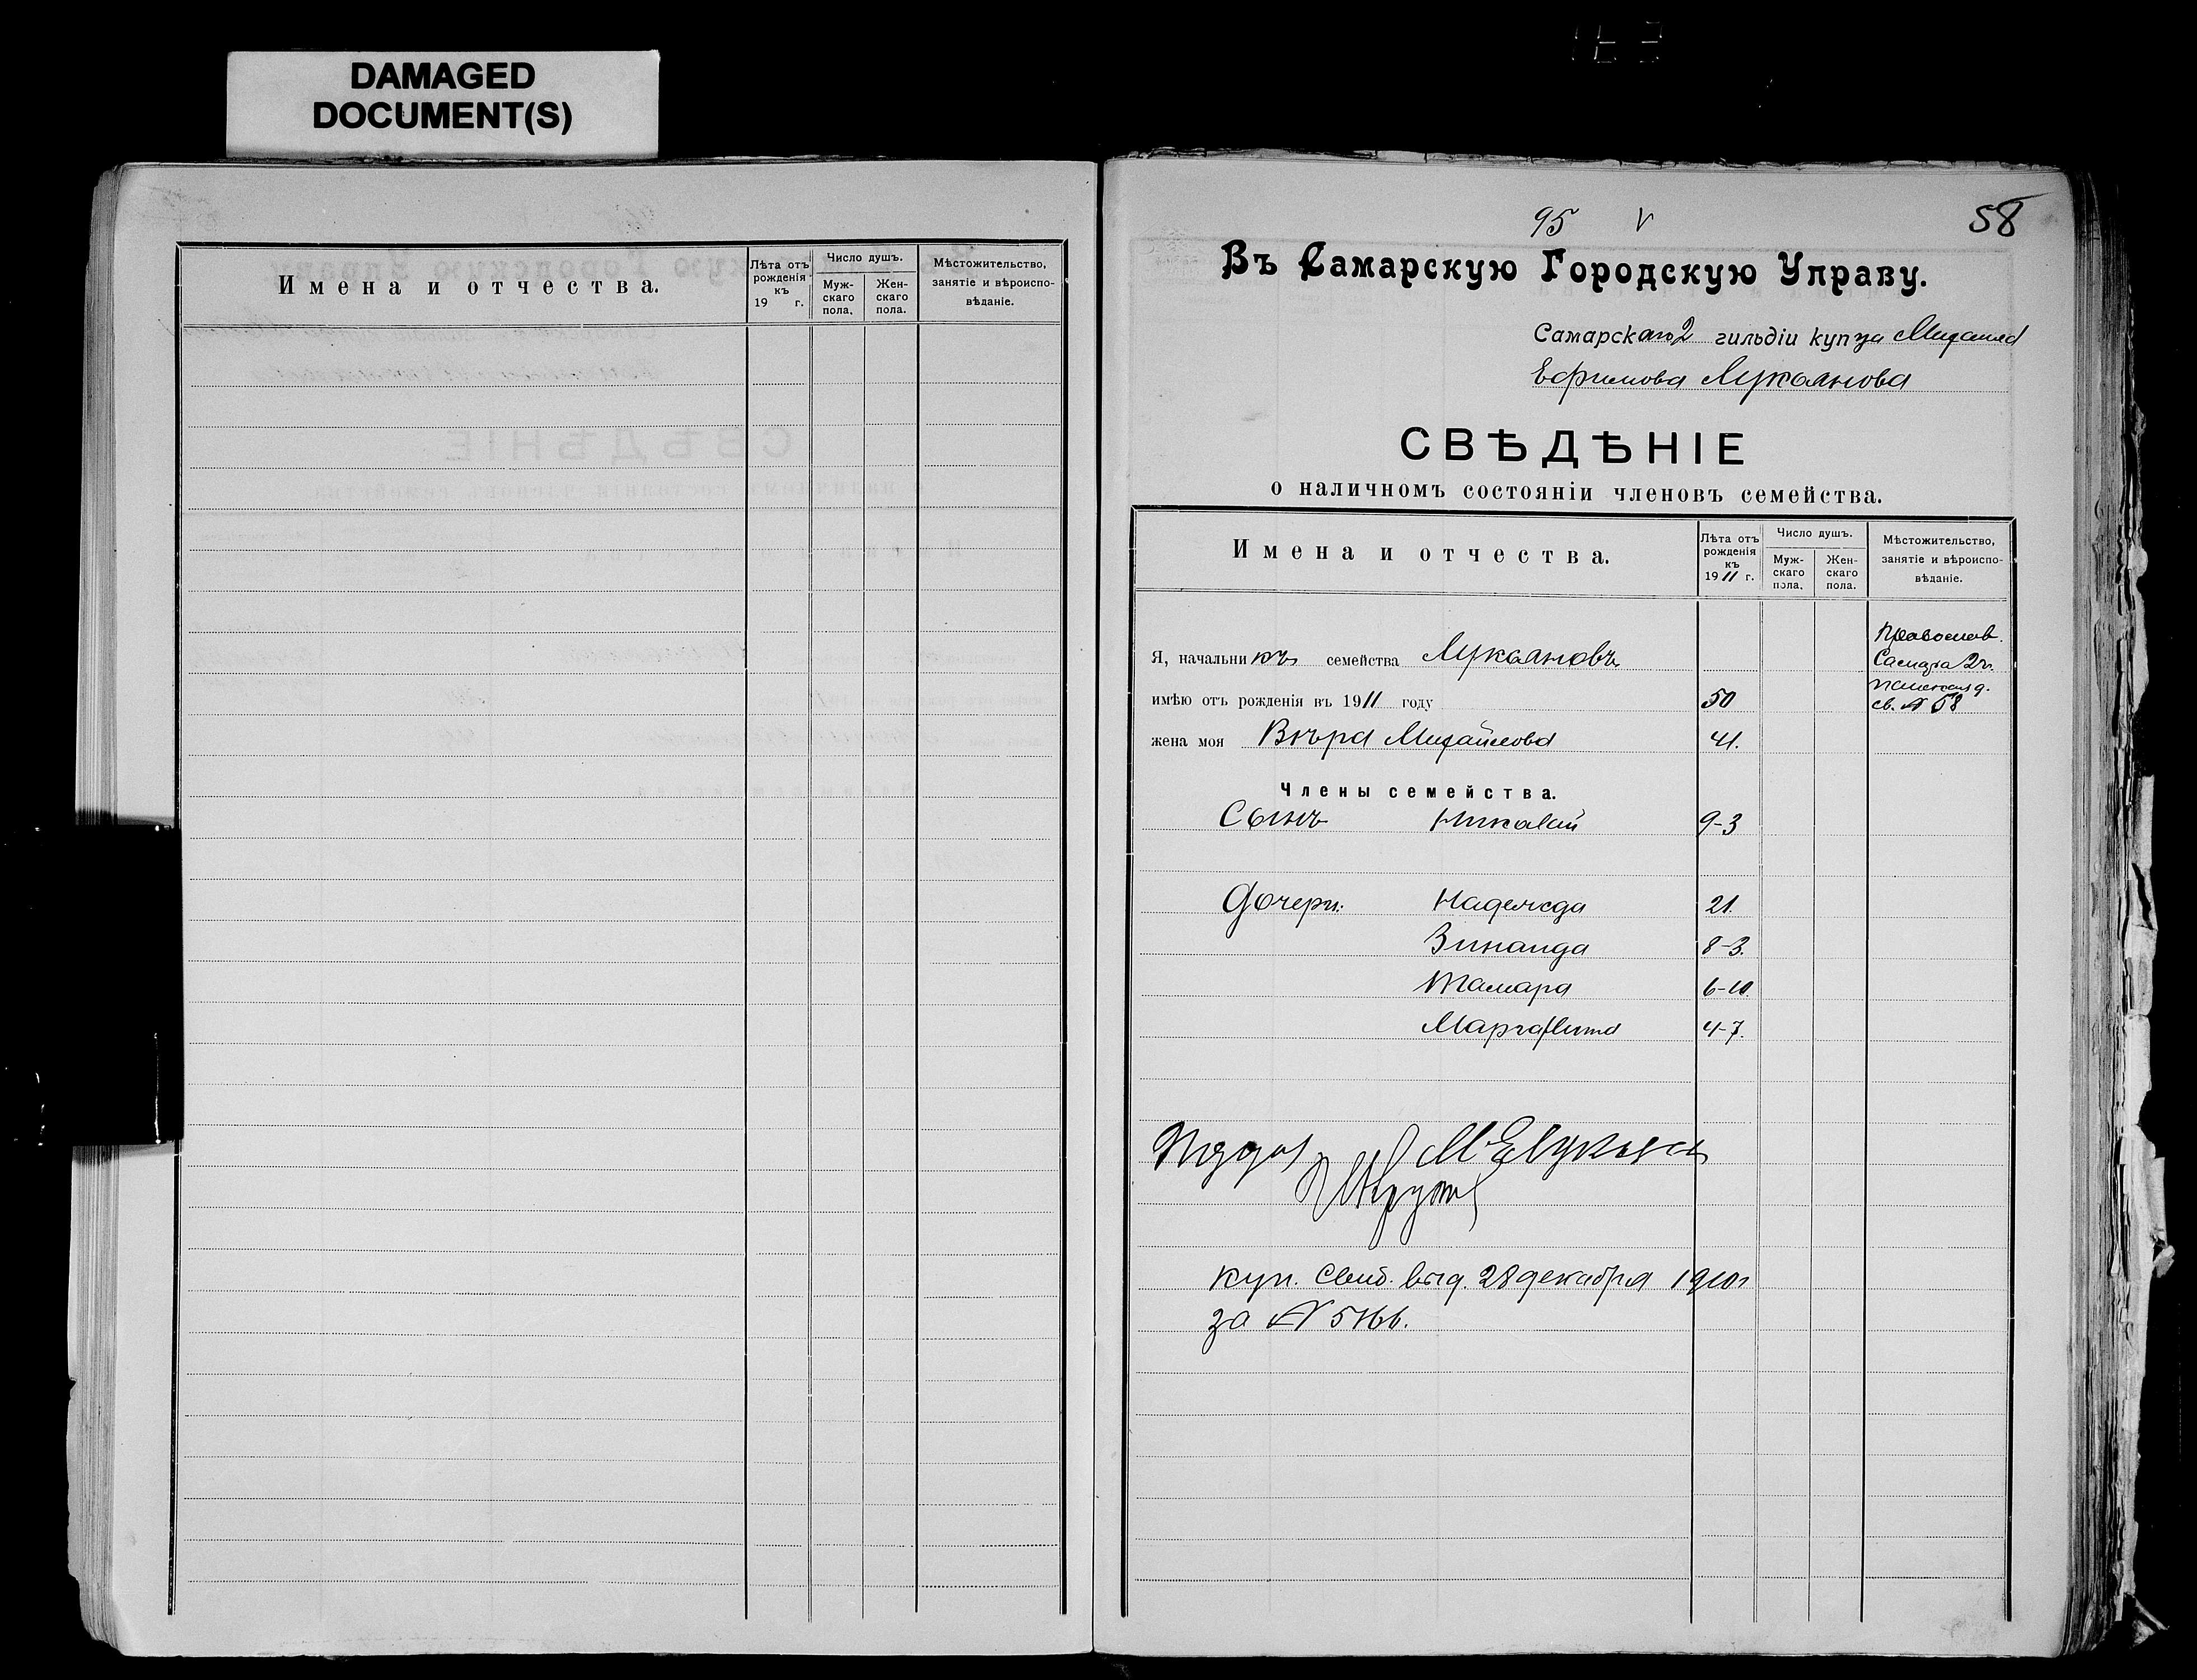 DAMAGED
DOCUMENT(S)
Имена и отчества.
Лѣта отъ рожденія къ 19 г.
Число душъ.
Муж- скаго пола.
Жен- скаго пола.
Мѣстожительство, занятіе и вѣроиспо- вѣданіе.
95 V
58
Въ Самарскую Городскую Управу.
Самарскаго 2 гильдіи купца Михаила
Ефимова Лукьянова
СВѢДѢНІЕ
о наличномъ состояніи членовъ семейства.
Имена и отчества.
Лѣта отъ рожденія къ 1911 г.
Число душъ.
Муж- скаго пола.
Жен- скаго пола.
Мѣстожительство, занятіе и вѣроиспо- вѣданіе.
Православ.
Я, начальникъ семейства Лукьяновъ
Самара 2ч.
имѣю отъ рожденія въ 1911 году 50
св. № 58
жена моя Вѣра Михайлова 41.
Члены семейства.
Сынъ Николай 9-3
Дочери: Надежда 21.
Зинаида 8-3.
Тамара 6-10.
Маргарита 4-7.
М Е Лукьян
куп. свид. выд. 28 декабря 1910 г
за № 5166.